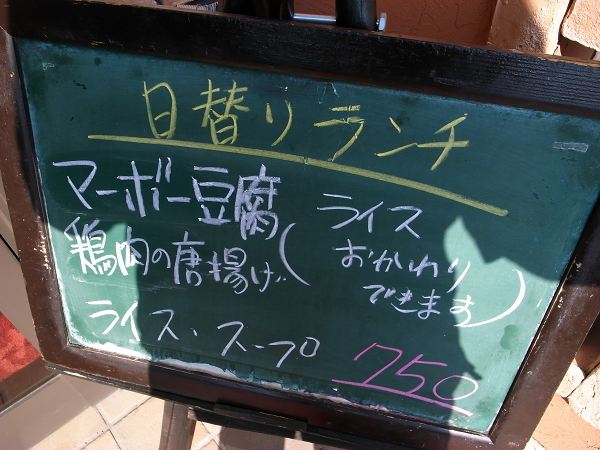 日替りランチ
マーボー豆腐
鶏肉の唐揚げ
(ライス
おかわり
できます)
ライス・スープ
750